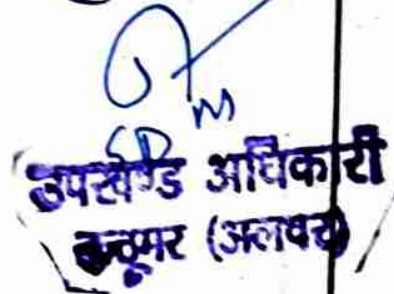 उपखण्ड अधिकारी
कठूमर (अलवर)